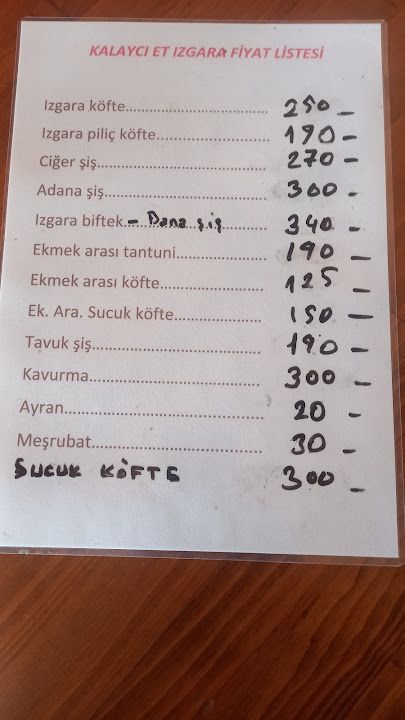 KALAYCI ET IZGARA FİYAT LİSTESİ
Izgara köfte........................................ 250 -
Izgara piliç köfte................................ 190 -
Ciğer şiş.............................................. 270 -
Adana şiş............................................ 300 -
Izgara biftek - Dana şiş........... 340 -
Ekmek arası tantuni........................ 190 -
Ekmek arası köfte............................ 125 -
Ek. Ara. Sucuk köfte........................ 150 -
Tavuk şiş............................................ 190 -
Kavurma............................................. 300 -
Ayran.................................................. 20 -
Meşrubat............................................ 30 -
SUCUK KÖFTE 300 -